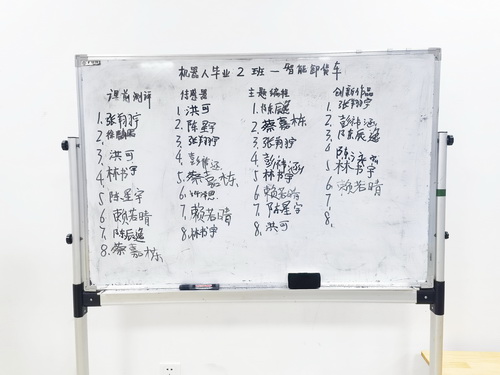 机器人毕业2班一智能卸货车
课前测评
1. 张翔宇
2.
3. 洪可
4. 林书宇
5. 陈星宇
6. 赖若晴
7. 陈辰逸
8. 蔡嘉栋
结构器
1. 洪可
2. 陈星宇
3. 张翔宇
4. 彭伟涵
5. 蔡嘉栋
6.
7. 赖若晴
8. 林书宇
主题编程
1. 陈辰逸
2. 蔡嘉栋
3. 张翔宇
4. 彭伟涵
5. 林书宇
6. 赖若晴
7. 陈星宇
8. 洪可
创新作品
1. 张翔宇
2. 彭伟涵
3. 陈辰逸
4.
5. 林书宇
6. 赖若晴
7.
8.